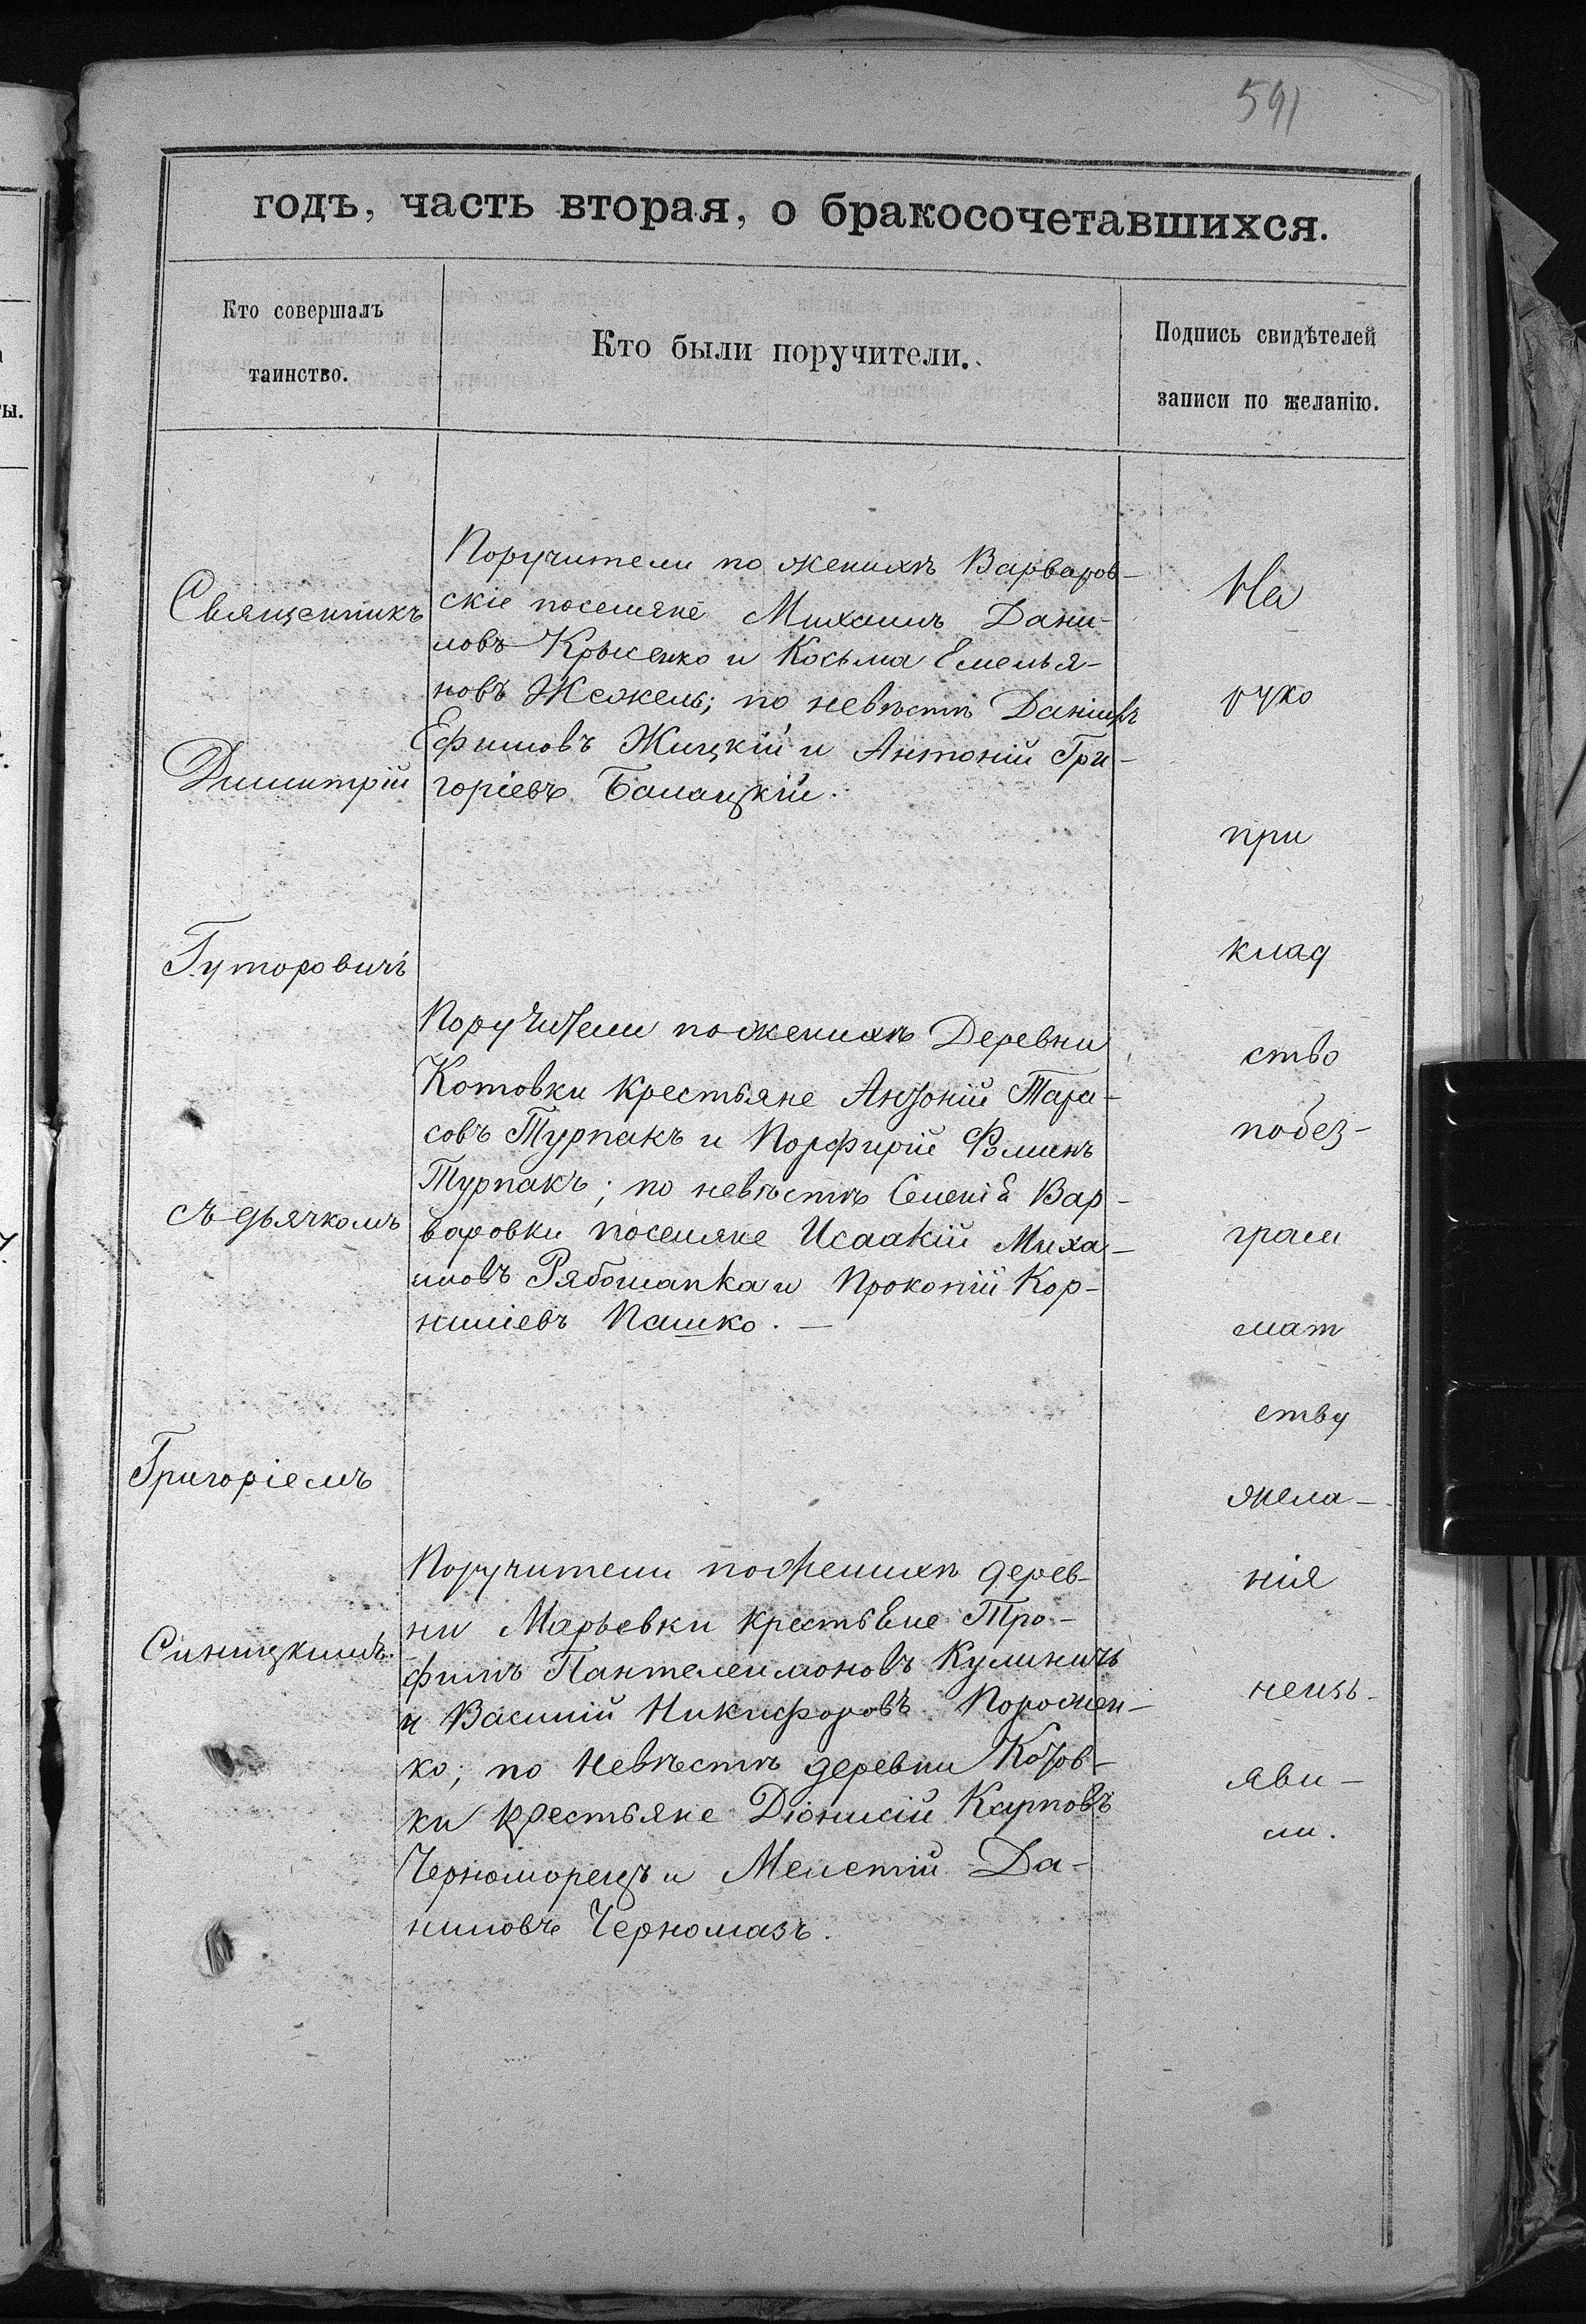 591
годъ, часть вторая, о бракосочетавшихся.
Кто совершалъ
таинство.
Кто были поручители.
Подпись свидѣтелей
записи по желанію.
Священникъ
Димитрій
Гуторовичъ
съ дьячкомъ
Григоріемъ
Синицкимъ.
Поручители по женихѣ Варваров-
скіе поселяне Михаилъ Дани-
ловъ Крысенко и Косьма Емелья-
новъ Жежель; по невѣстѣ Даніилъ
Ефимовъ Жицкій и Антоній Гри-
горіевъ Балацкій.
Поручители по женихѣ Деревни
Котовки крестьяне Антоній Тара-
совъ Турпакъ и Порфирій Фоминъ
Турпакъ; по невѣстѣ Селенія Вар-
варовки поселяне Исаакій Миха-
иловъ Рябошапка и Прокопій Кор-
ниліевъ Пашко. —
Поручители по женихѣ дерев-
ни Марьевки крестьяне Тро-
фимъ Пантелеимоновъ Кулиничъ
и Василій Никифоровъ Порожен-
ко; по невѣстѣ деревни Котов-
ки крестьяне Діонисій Карповъ
Черноморецъ и Мелетій Да-
ниловъ Черномазъ.
На
руко
при
клад
ство
по без-
грам
мат
ству
жела-
нія
неизъ-
яви-
ли.